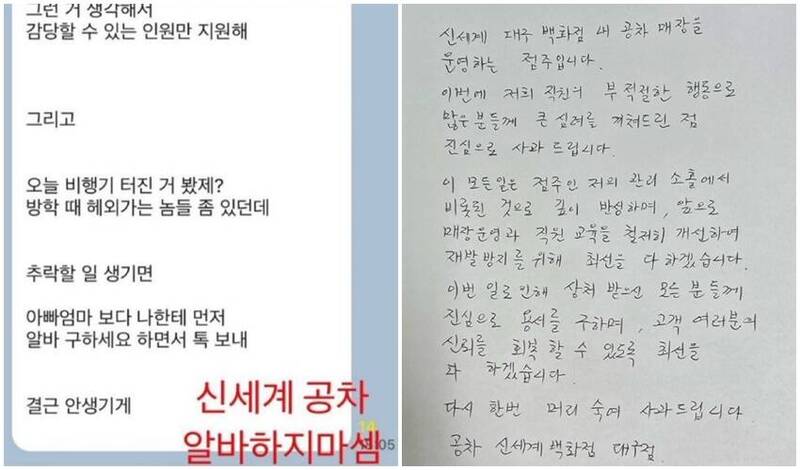 그런 거 생각해서
감당할 수 있는 인원만 지원해
그리고
오늘 비행기 터진 거 봤제?
방학 때 헤외가는 놈들 좀 있던데
추락할 일 생기면
아빠엄마 보다 나한테 먼저
알바 구하세요 하면서 톡 보내
결근 안생기게
신세계 공차
알바하지마셈
14
신세계 대구 백화점 내 공차 매장을
운영하는 점주입니다.
이번에 저희 직원의 부적절한 행동으로
많은 분들께 큰 심려를 끼쳐드린 점
진심으로 사과 드립니다.
이 모든일은 점주인 저의 관리 소홀에서
비롯된 것으로 깊이 반성하며, 앞으로
매장운영과 직원 교육을 철저히 개선하여
재발방지를 위해 최선을 다 하겠습니다.
이번 일로 인해 상처 받으신 모든 분들께
진심으로 용서를 구하며, 고객 여러분의
신뢰를 회복 할 수 있도록 최선을
다 하겠습니다.
다시 한번 머리 숙여 사과드립니다
공차 신세계백화점 대구점